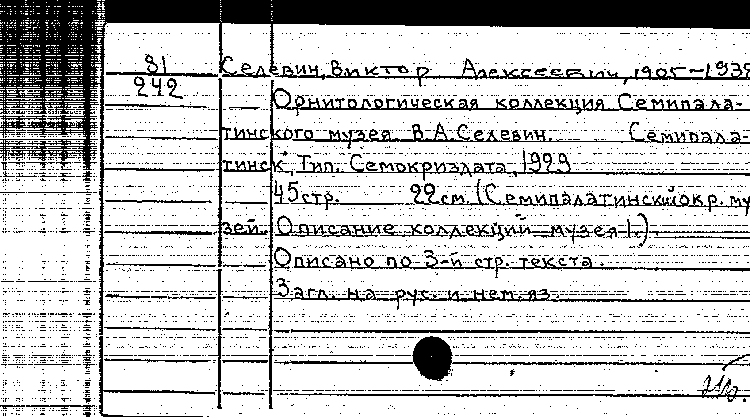 81 Селевин, Виктор Алексеевич, 1905-1938
242 Орнитологическая коллекция Семипала-
тинского музея. В.А.Селевин. Семипала-
тинск, Тип. Семокриздата, 1929
45 стр. 22 см. (Семипалатинский окр. му
зей. Описание коллекций музея 1.).
Описано по 3-й стр. текста.
Загл. на рус. и нем. яз.